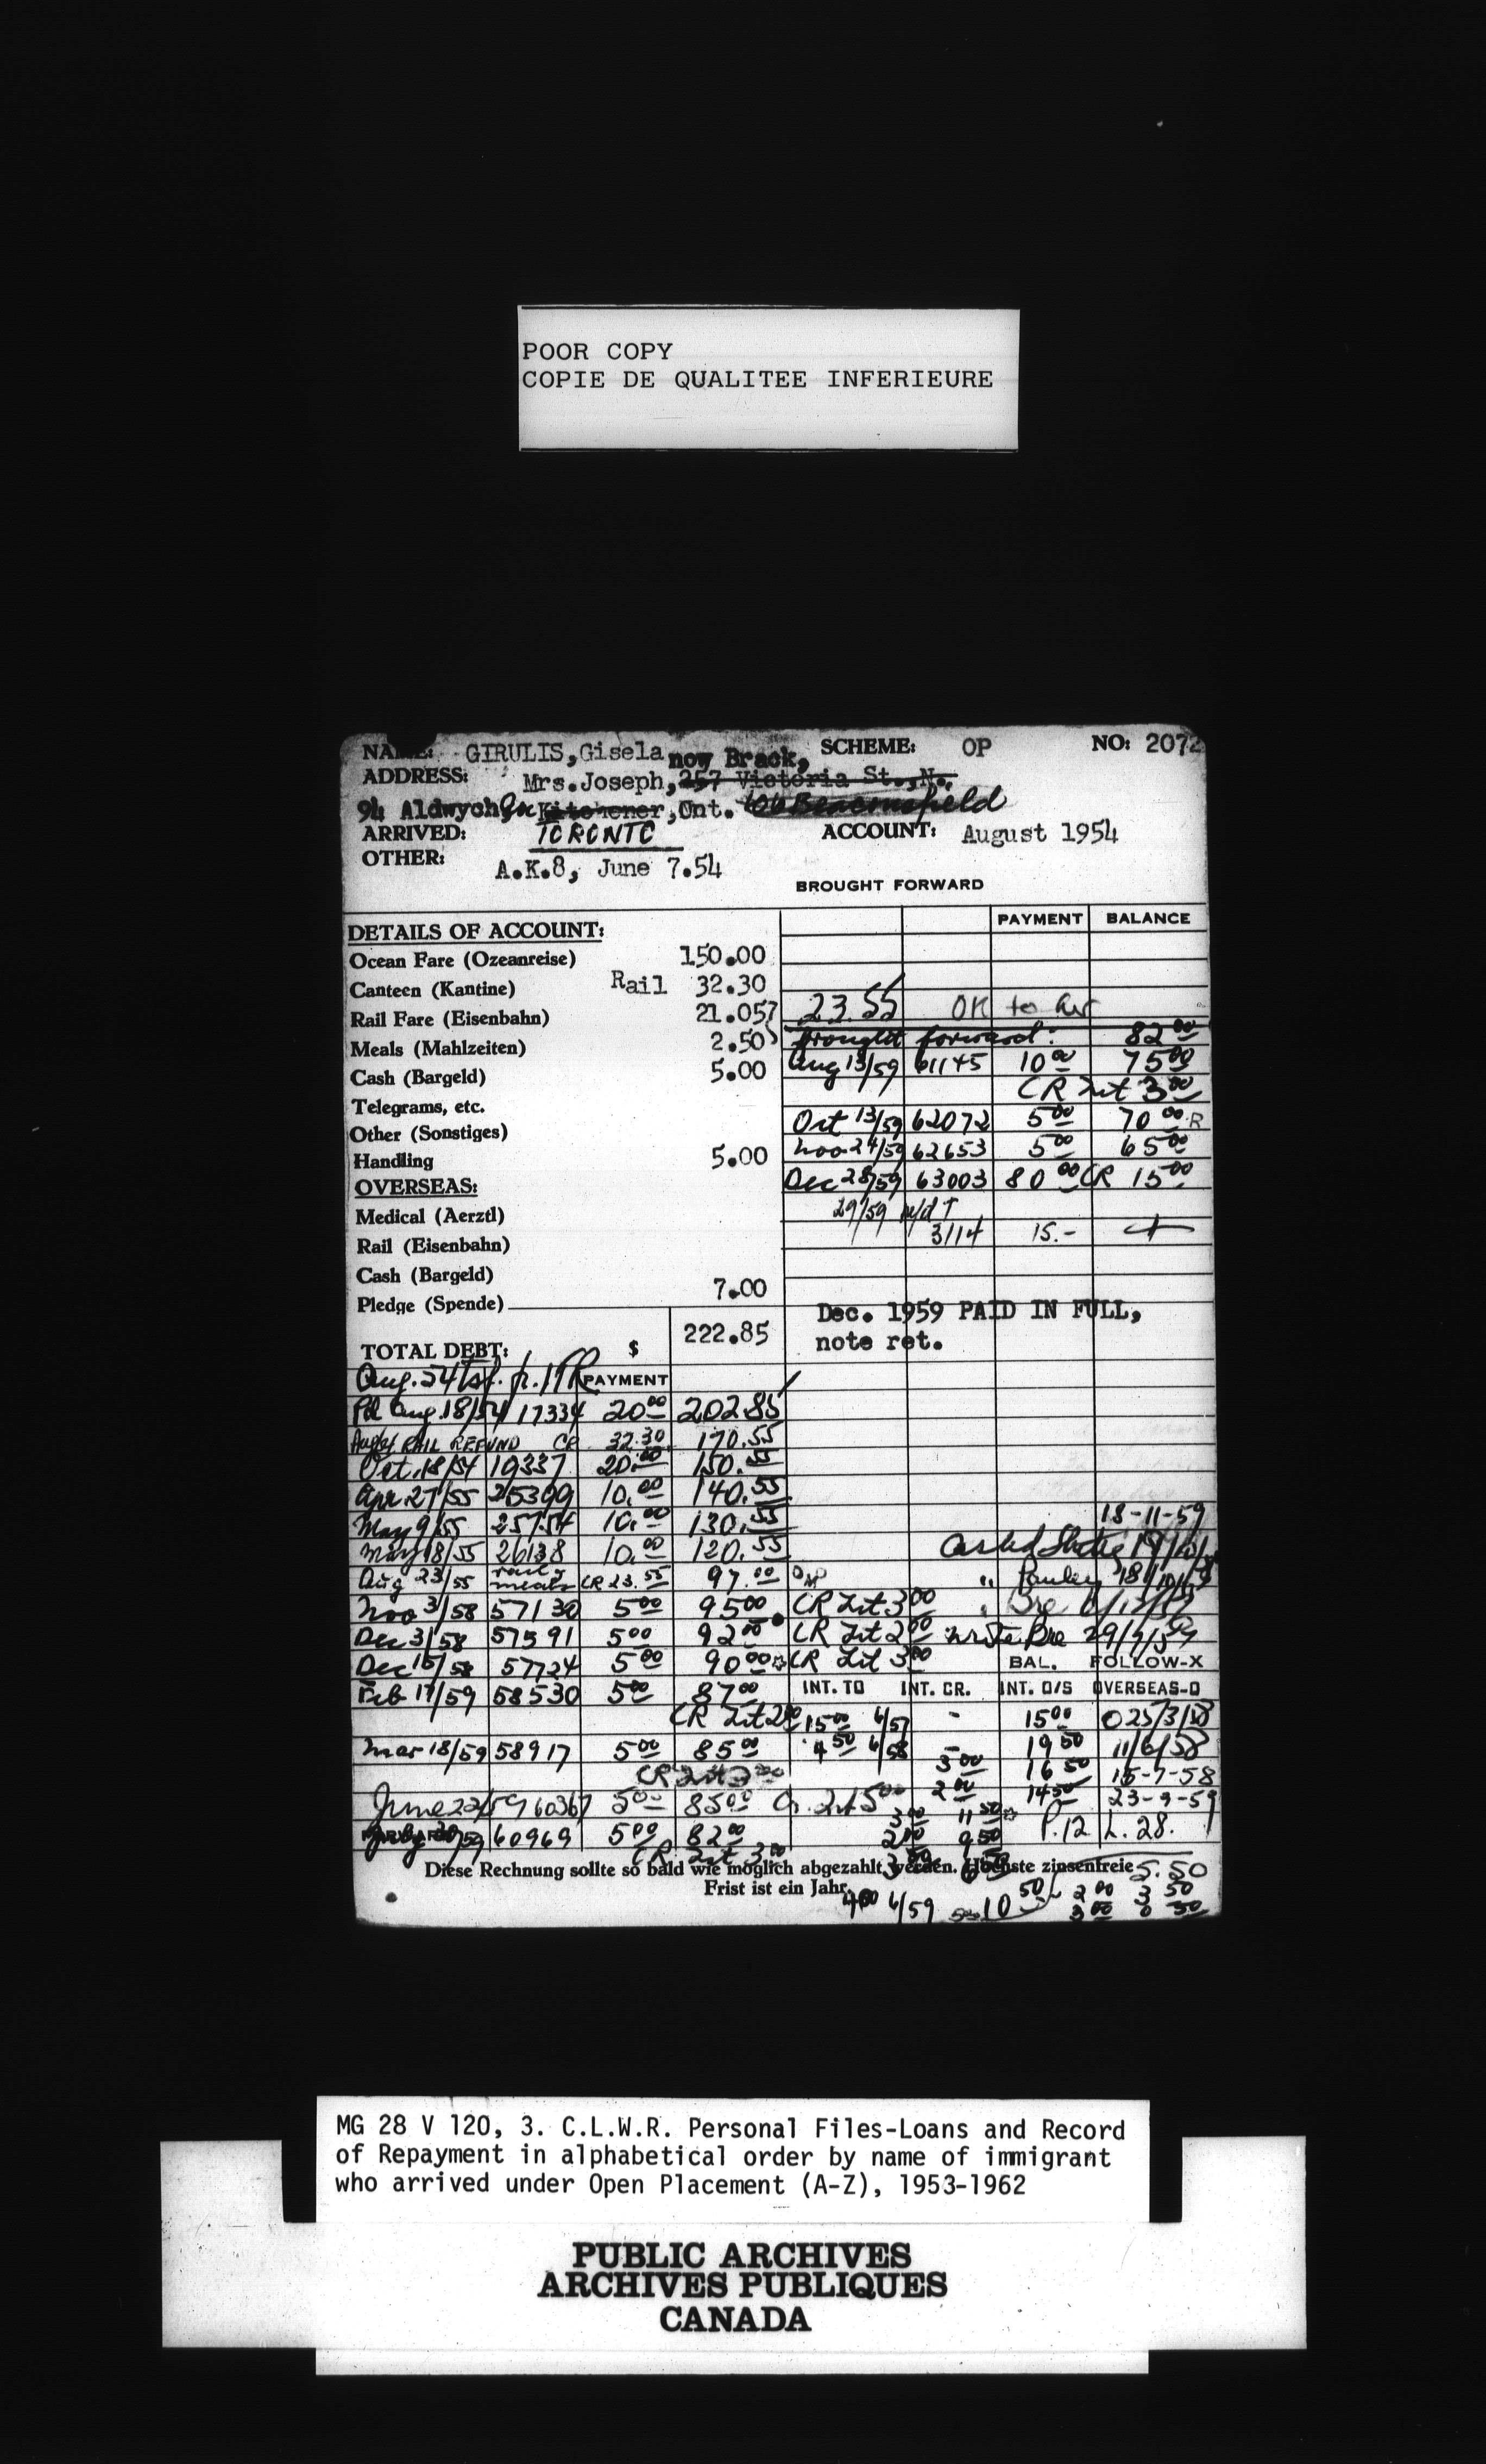 POOR COPY
COPIE DE QUALITEE INFERIEURE
NAME: GIRULIS, Gisela now Brack, SCHEME: OP NO: 2072
ADDRESS: Mrs. Joseph, 257 Victoria St., N.,
94 Aldwych Kitchener, Ont. 606 Beaconsfield
ARRIVED: TORONTO ACCOUNT: August 1954
OTHER: A.K.8, June 7.54
BROUGHT FORWARD
PAYMENT BALANCE
DETAILS OF ACCOUNT:
Ocean Fare (Ozeanreise) 150.00
Canteen (Kantine) Rail 32.30
Rail Fare (Eisenbahn) 21.05
Meals (Mahlzeiten) 2.50
Cash (Bargeld) 5.00
Telegrams, etc.
Other (Sonstiges)
Handling 5.00
OVERSEAS:
Medical (Aerztl)
Rail (Eisenbahn)
Cash (Bargeld)
Pledge (Spende) 7.00
TOTAL DEBT: $ 222.85
23.55 OK to
Brought forward: 82.00
Aug 13/59 61145 10.00 75.00
CR Int 3.00
Oct 13/59 62072 5.00 70.00 R
Nov 24/59 62653 5.00 65.00
Dec 28/59 63003 80.00 CR 15.00
29/59
3114 15.-
Dec. 1959 PAID IN FULL,
note ret.
Aug. 54 tsf. fr.
PAYMENT
Pd Aug. 18/54 17334 20.00 202.85
Aug/54 RAIL REFUND CR 32.30 170.55
Oct. 18/54 19337 20.00 150.55
Apr. 27/55 25399 10.00 140.55
May 9/55 25754 10.00 130.55
May 18/55 26138 10.00 120.55
Aug 23/55 rail & meals CR 23.55 97.00
Nov 3/58 57130 5.00 95.00 CR Int 3.00
Dec 3/58 57591 5.00 92.00 CR Int 2.00
Dec 15/58 57724 5.00 90.00 CR Int 3.00
Feb 17/59 58530 5.00 87.00
CR Int 2.00
Mar 18/59 58917 5.00 85.00
CR Int 3.00
June 22/59 60367 5.00 85.00 Cr. Int 5.00
60969 5.00 82.00
CR Int 3.00
18-11-59
BAL. FOLLOW-X
INT. TO INT. CR. INT. O/S OVERSEAS-O
15.00 6/57 - 15.00 O 25/3/58
4.50 6/58 - 19.50 11/6/58
3.00 16.50 15-7-58
2.00 14.50 23-9-59
3.00 11.50 P.12 L.28.
2.00 9.50
Diese Rechnung sollte so bald wie möglich abgezahlt werden. Höchste zinsenfreie 5.50
Frist ist ein Jahr.
4.00 6/59 10.50 2.00 3.50
3.00 0.50
MG 28 V 120, 3. C.L.W.R. Personal Files-Loans and Record
of Repayment in alphabetical order by name of immigrant
who arrived under Open Placement (A-Z), 1953-1962
PUBLIC ARCHIVES
ARCHIVES PUBLIQUES
CANADA